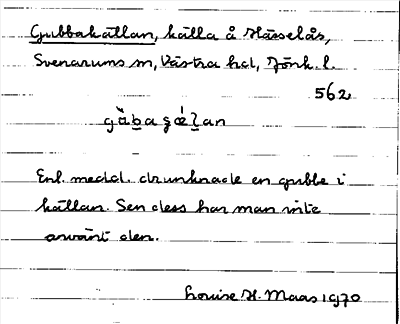 Gubbakällan, källa å Hässelås,
Svenarums sn, Västra hd, Jönk. l.
562
Enl. medd. drunknade en gubbe i
källan. Sen dess har man inte
använt den.
Louise H. Maas 1970